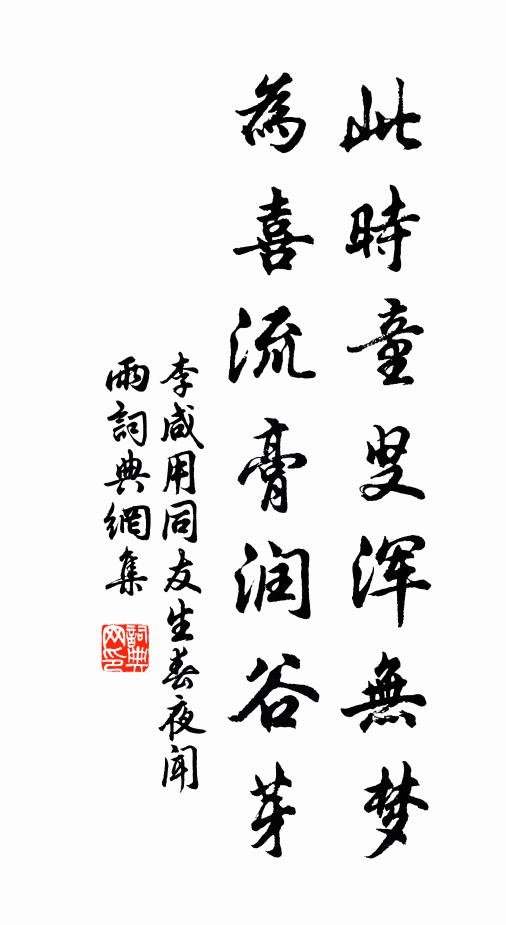 此時童叟浑無梦
為喜流膏润谷芽
李咸用同友生春夜闻
雨詞典網集
詞典網印